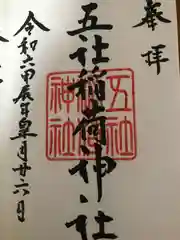 奉拝
五社稲荷神社
五社
神社
令和六甲辰年皐月廿六日